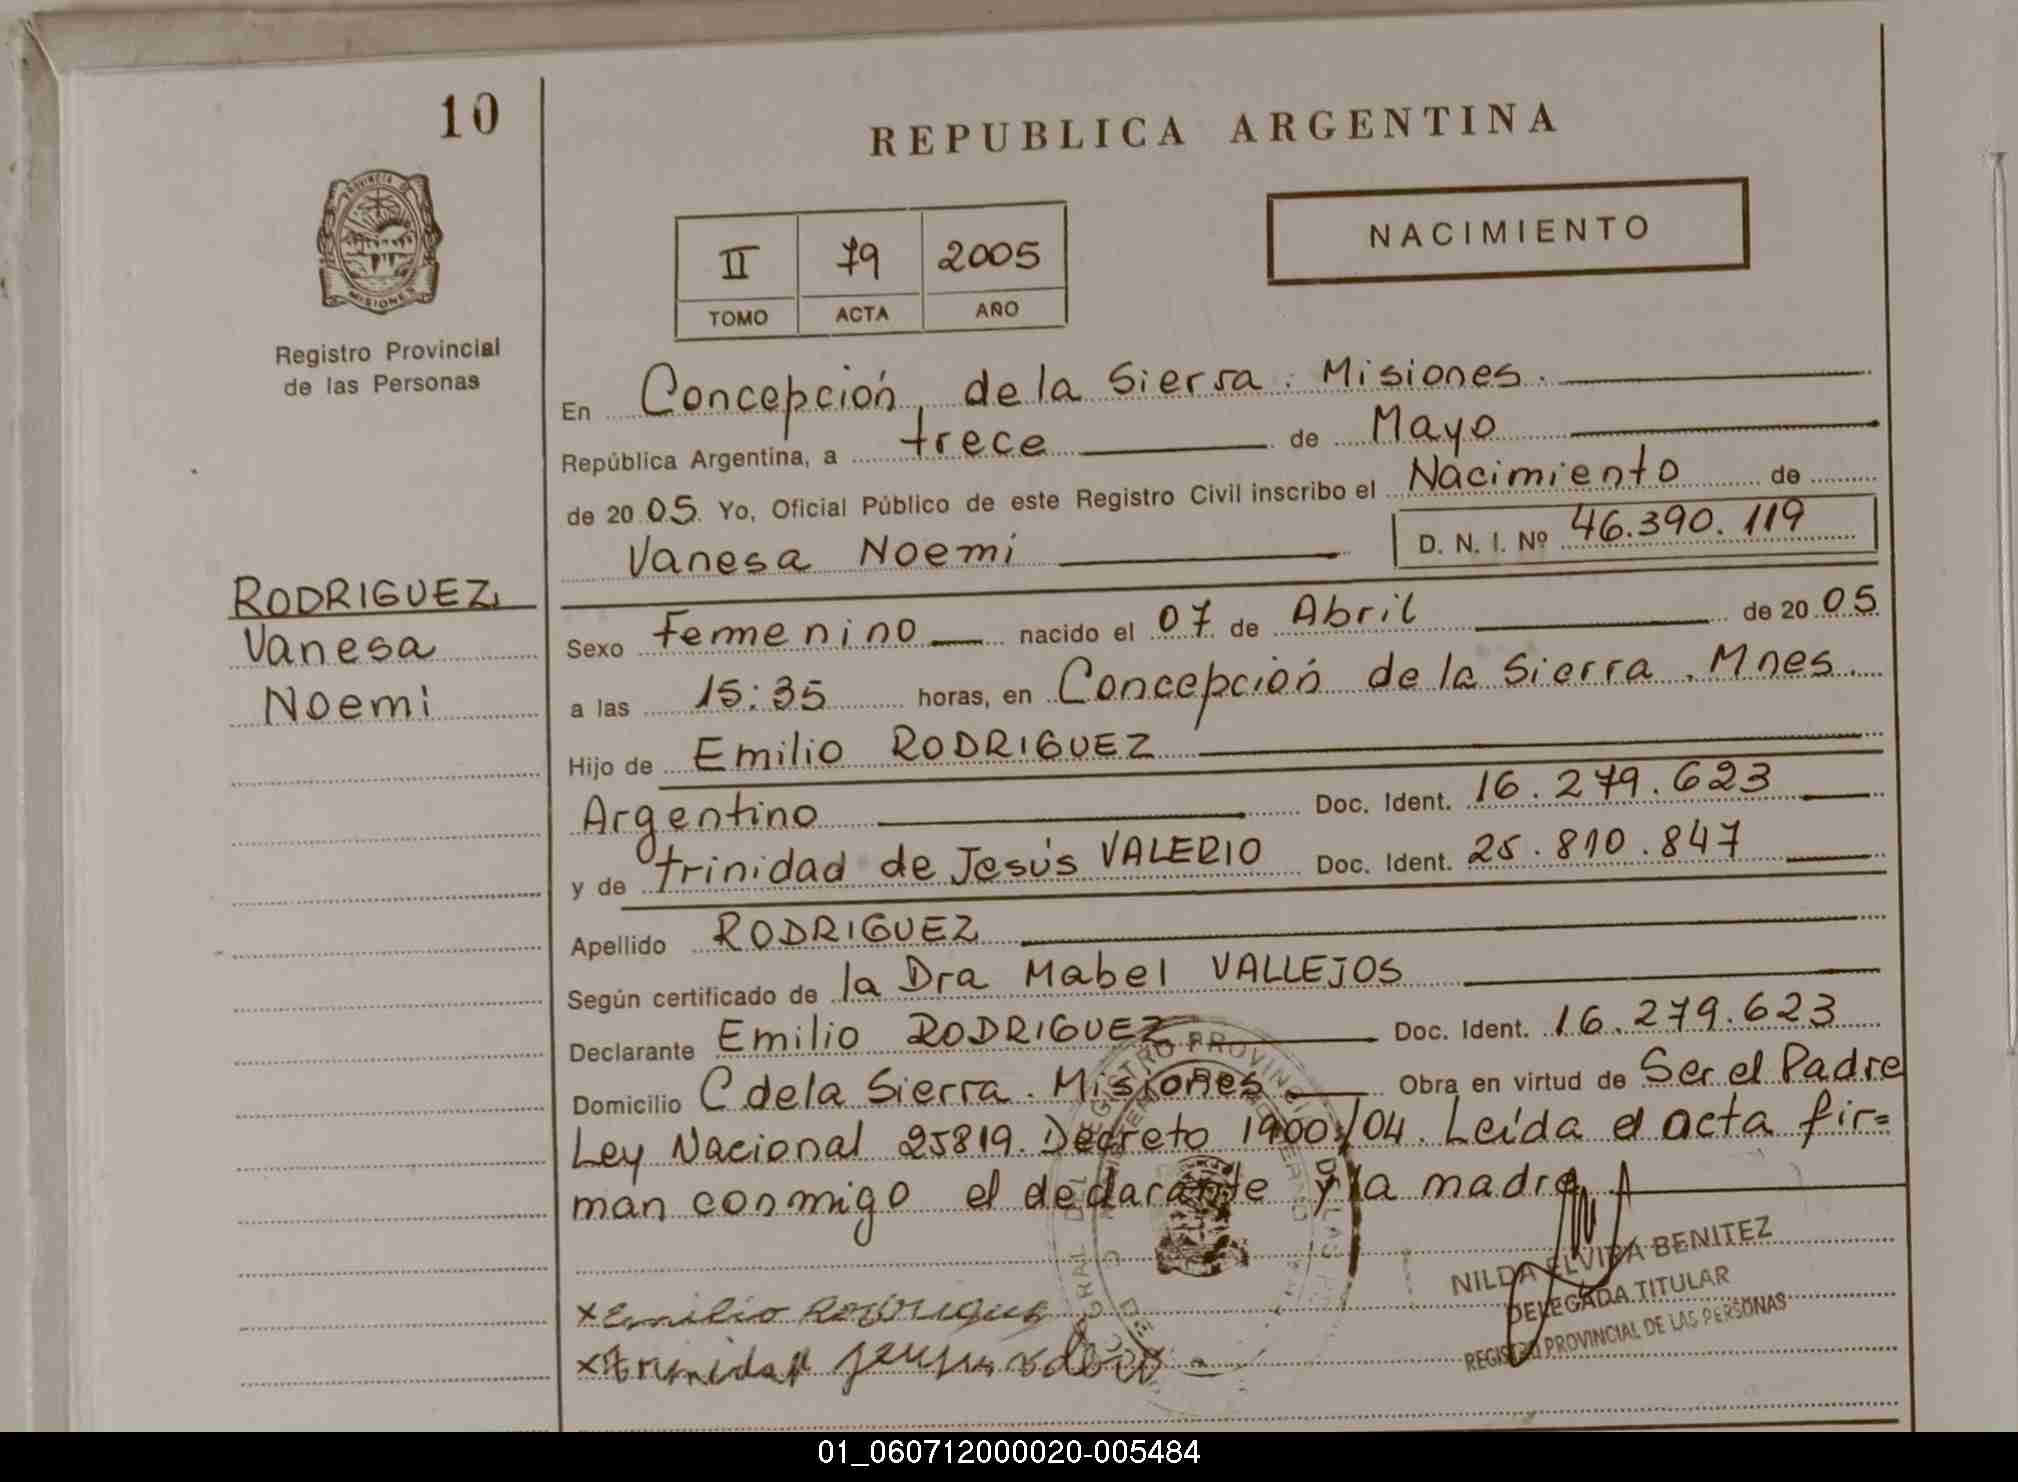 10
REPUBLICA ARGENTINA
PROVINCIA DE
MISIONES
Registro Provincial
de las Personas
NACIMIENTO
II 79 2005
TOMO ACTA AÑO
En Concepción de la Sierra. Misiones.
República Argentina, a trece de Mayo
de 2005. Yo, Oficial Público de este Registro Civil inscribo el Nacimiento de
Vanesa Noemi D. N. I. Nº 46.390.119
RODRIGUEZ,
Vanesa
Noemi
Sexo Femenino nacido el 07 de Abril de 2005
a las 15:35 horas, en Concepción de la Sierra. Mnes.
Hijo de Emilio RODRIGUEZ
Argentino Doc. Ident. 16.279.623
y de trinidad de Jesús VALERIO Doc. Ident. 25.810.847
Apellido RODRIGUEZ
Según certificado de la Dra Mabel VALLEJOS
Declarante Emilio RODRIGUEZ Doc. Ident. 16.279.623
Domicilio C de la Sierra. Misiones Obra en virtud de Ser el Padre
Ley Nacional 25819. Decreto 1900/04. Leída el acta fir=
man conmigo el declarante y la madre
REGISTRO PROVINCIAL
NILDA ELVIRA BENITEZ
DELEGADA TITULAR
REGISTRO PROVINCIAL DE LAS PERSONAS
x Emilio Rodriguez
x trinidad
01_060712000020-005484